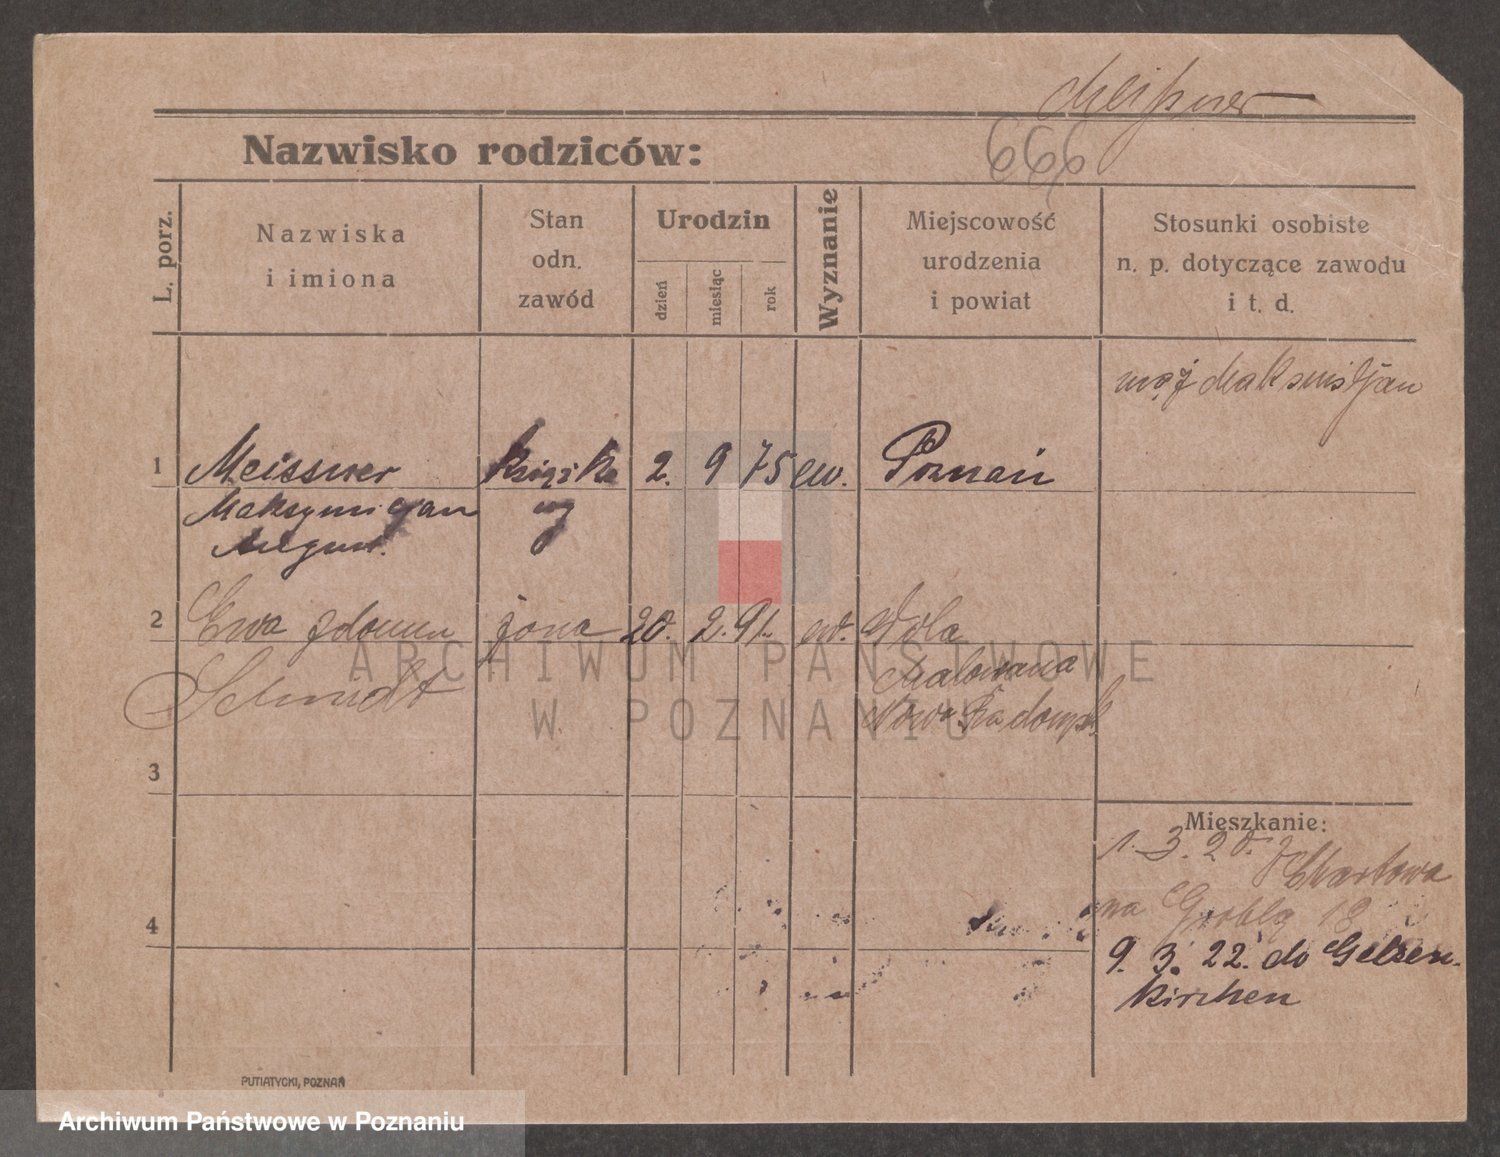 Meißner
666
Nazwisko rodziców:
L. porz.
Nazwiska
i imiona
Stan
odn.
zawód
Urodzin
dzień
miesiąc
rok
Wyznanie
Miejscowość
urodzenia
i powiat
Stosunki osobiste
n. p. dotyczące zawodu
i t. d.
mąż Maksmiljan
1 Meissner 2. 9 75 ew. Poznań
Maksymiljan
August.
2 Ewa zdomu żona 20. 2. 91. Wola
Schmidt Malowana
Nowo Radomsk
3
4
Mieszkanie:
1. 3. 20. z Chartowa
na Groblę 18
9. 3. 22. do Gelsen-
kirchen
ARCHIWUM PAŃSTWOWE
W POZNANIU
PUTIATYCKI, POZNAŃ
Archiwum Państwowe w Poznaniu